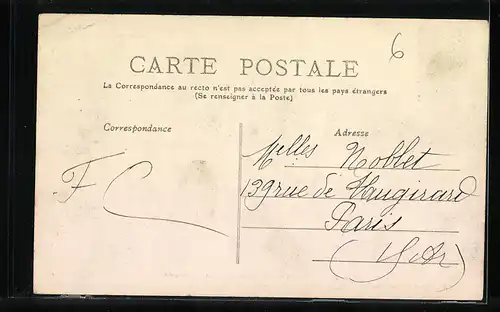 6
CARTE POSTALE
La Correspondance au recto n'est pas acceptée par tous les pays étrangers
(Se renseigner à la Poste)
Correspondance
Adresse
Melles Noblet
139 rue de Vaugirard
Paris
(15 Ar)
F C